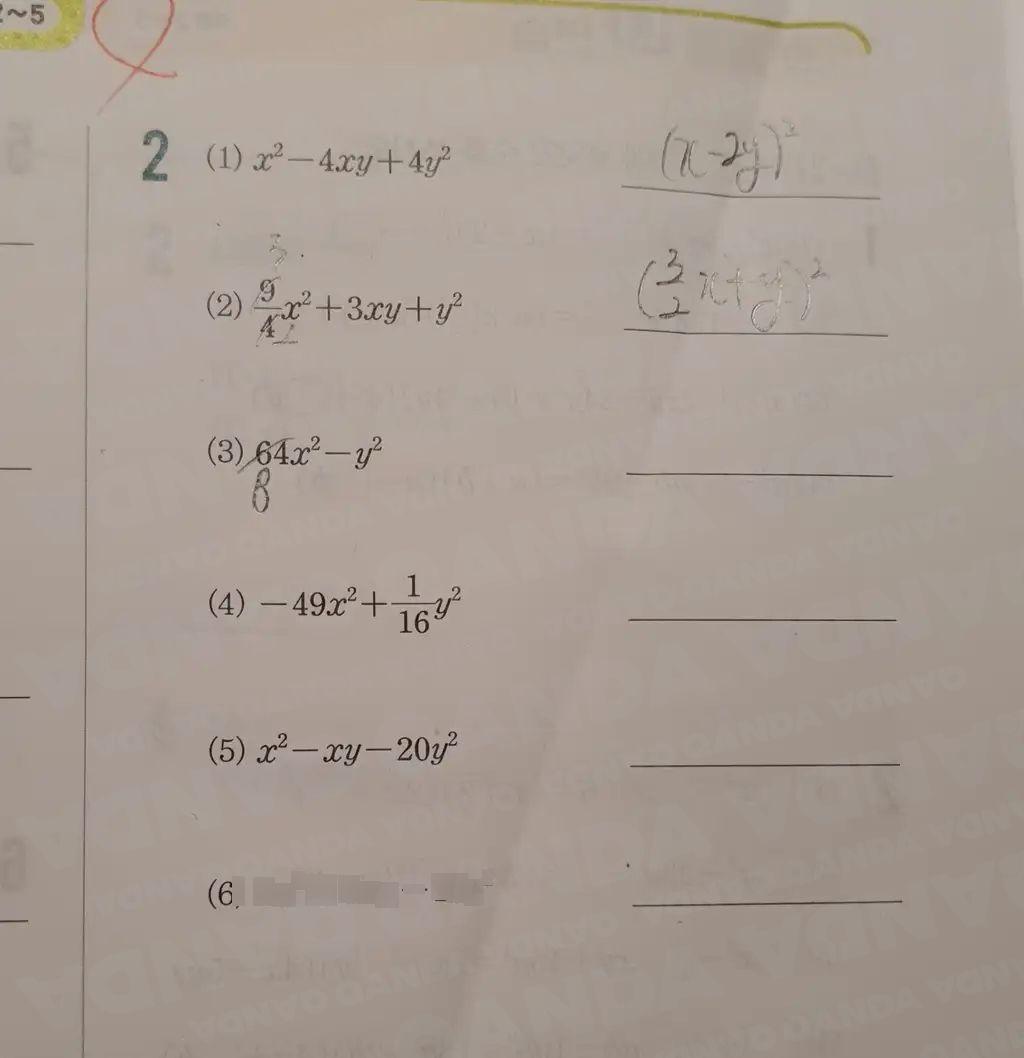 2~5
2 (1) x² − 4xy + 4y² (x − 2y)²
3
(2) 9/4 x² + 3xy + y² (3/2 x + y)²
2
(3) 64x² − y²
8
(4) −49x² + 1/16 y²
(5) x² − xy − 20y²
(6